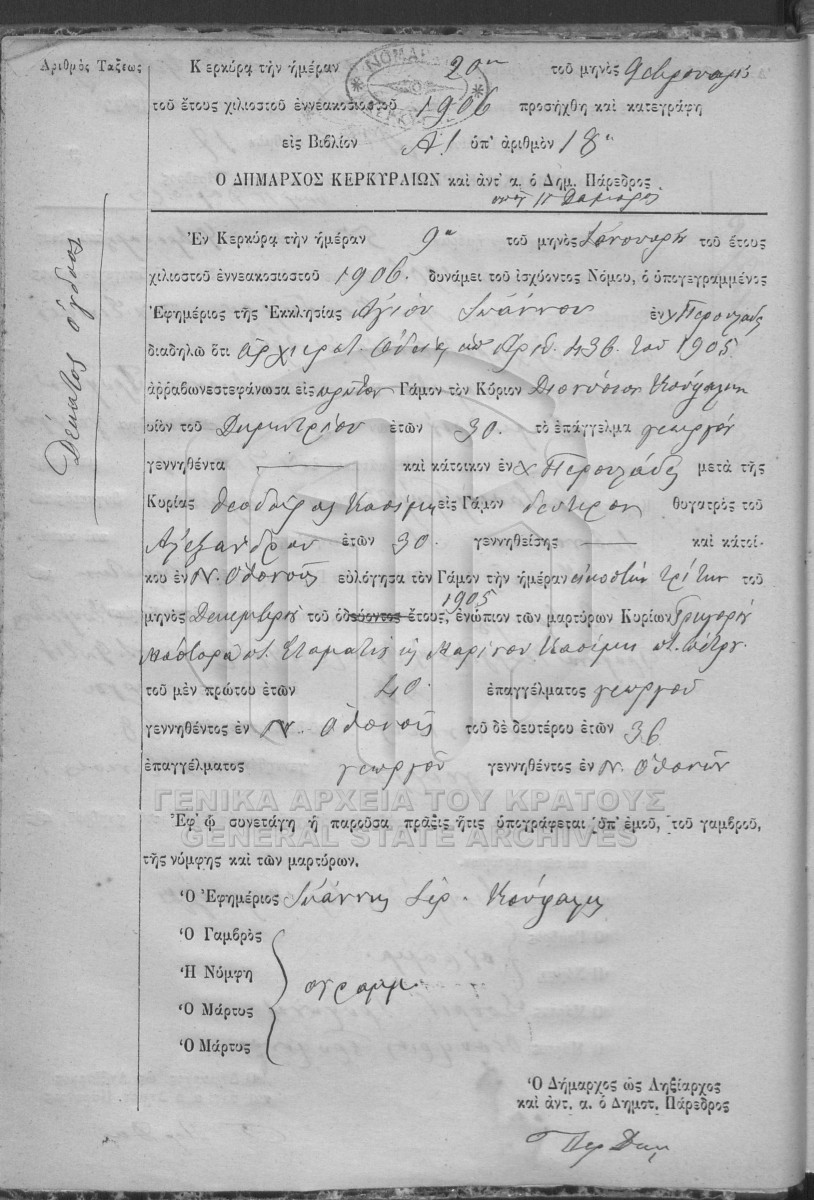 Ἀριθμὸς Τάξεως
Κερκύρα τὴν ἡμέραν 20ην τοῦ μηνὸς Φεβρουαρίου
τοῦ ἔτους χιλιοστοῦ ἐννεακοσιοστοῦ 1906 προσήχθη καὶ κατεγράφη
εἰς Βιβλίον Α! ὑπ' ἀριθμὸν 18
Ο ΔΗΜΑΡΧΟΣ ΚΕΡΚΥΡΑΙΩΝ καὶ ἀντ' α. ὁ Δημ. Πάρεδρος
Δέκατος ὄγδοος
Ἐν Κερκύρᾳ τὴν ἡμέραν 9ην τοῦ μηνὸς Ἰανουαρίου τοῦ ἔτους
χιλιοστοῦ ἐννεακοσιοστοῦ 1906. δυνάμει τοῦ ἰσχύοντος Νόμου, ὁ ὑπογεγραμμένος
Ἐφημέριος τῆς Ἐκκλησίας Ἁγίου Ἰωάννου ἐν χ Περουλάδες
διαδηλῶ ὅτι ἀρχιερατ. ἀδείᾳ ὑπ' ἀριθ. 436. τοῦ 1905
ἀρραβωνεστεφάνωσα εἰς πρῶτον Γάμον τὸν Κύριον Διονύσιον Κούφαλην
υἱὸν τοῦ Δημητρίου ἐτῶν 30. τὸ ἐπάγγελμα γεωργὸν
γεννηθέντα — καὶ κάτοικον ἐν χ Περουλάδες μετὰ τῆς
Κυρίας Θεοδώρας Κασίμη εἰς Γάμον δεύτερον θυγατρὸς τοῦ
Ἀλεξάνδρου ἐτῶν 30. γεννηθείσης — καὶ κατοί-
κου ἐν Ν. Ὀθωνοῖς εὐλόγησα τὸν Γάμον τὴν ἡμέραν εἰκοστὴν τρίτην τοῦ
μηνὸς Δεκεμβρίου τοῦ ὁδεύοντος ἔτους, 1905 ἐνώπιον τῶν μαρτύρων Κυρίων Γρηγορίου
Μάστορα Σταματίου Μαρίνου Κασίμη
τοῦ μὲν πρώτου ἐτῶν 40. ἐπαγγέλματος γεωργοῦ
γεννηθέντος ἐν Ν. Ὀθωνοῖς τοῦ δὲ δευτέρου ἐτῶν 36
ἐπαγγέλματος γεωργοῦ γεννηθέντος ἐν Ν. Ὀθωνῶν
ΓΕΝΙΚΑ ΑΡΧΕΙΑ ΤΟΥ ΚΡΑΤΟΥΣ
GENERAL STATE ARCHIVES
Ἐφ' ᾧ συνετάγη ἡ παροῦσα πρᾶξις ἥτις ὑπογράφεται ὑπ' ἐμοῦ, τοῦ γαμβροῦ,
τῆς νύμφης καὶ τῶν μαρτύρων.
Ὁ Ἐφημέριος Ἰωάννης Ἱερ. Κούφαλης
Ὁ Γαμβρὸς
Ἡ Νύμφη
Ὁ Μάρτυς
Ὁ Μάρτυς
Ὁ Δήμαρχος ὡς Ληξίαρχος
καὶ ἀντ. α. ὁ Δημοτ. Πάρεδρος